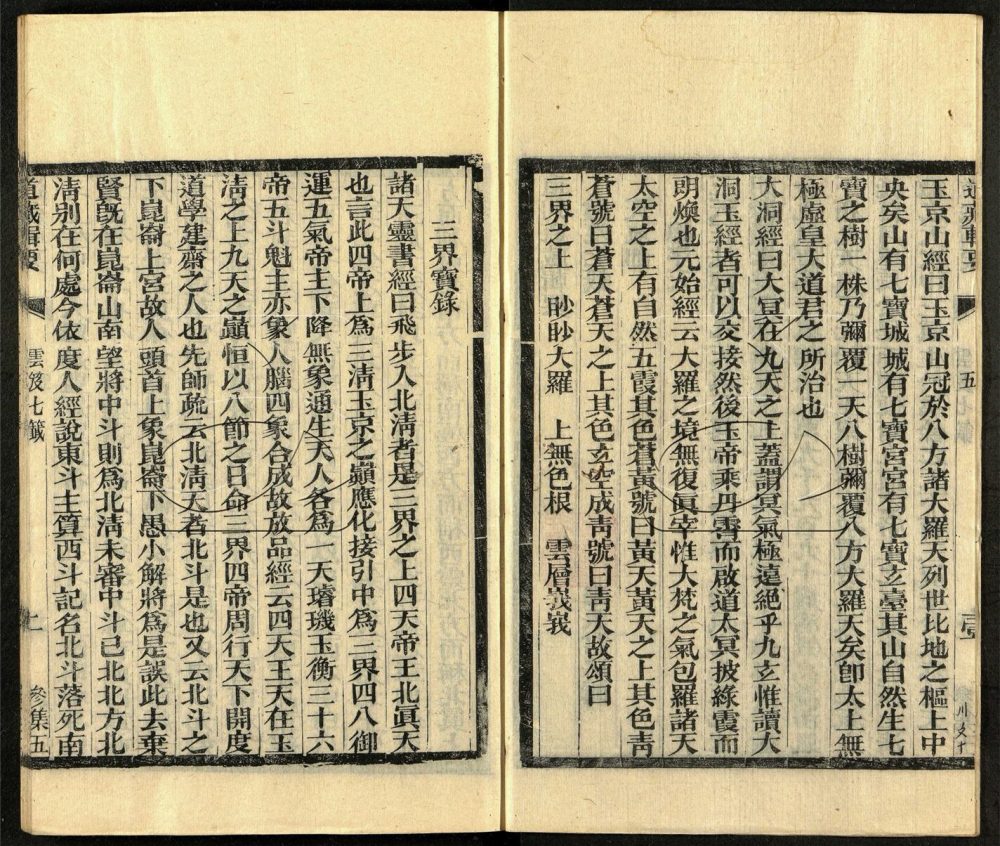 玉京山經曰玉京山冠於八方諸大羅天列世比地之樞上中
央矣山有七寶城城有七寶宮宮有七寶玄臺其山自然生七
寶之樹一株乃彌覆一天八樹彌覆八方大羅天矣卽太上無
極虛皇大道君之所治也
大洞經曰大冥在九天之上蓋謂冥氣極遠絕乎九玄惟讀大
洞玉經者可以交接然後玉帝乘丹霄而啟道太冥披綠霞而
朗煥也元始經云大羅之境無復眞宰惟大梵之氣包羅諸天
太空之上有自然五霞其色蒼黃號曰黃天黃天之上其色青
蒼號曰蒼天蒼天之上其色玄空成靑號曰靑天故頌曰
三界之上 眇眇大羅 上無色根 雲層峩峩
三界寶籙
諸天靈書經曰飛步入北淸者是三界之上四天帝王北眞天
也言此四帝上爲三淸玉京之巓應化接引中爲三界四八御
運五氣帝主下降無象通生天人各爲一天璿璣玉衡三十六
帝五斗魁主亦象人腦四象合成故放品經云四天王天在玉
淸之上九天之巓恒以八節之日命三界四帝周行天下開度
道學建齋之人也先師疏云北淸天者北斗是也又云北斗之
下崑崙上宮故人頭首上象崑崙下愚小解將爲是談此去棄
賢旣在崑崙山南望將中斗則爲北淸未審中斗已北北方北
淸別在何處今依度人經說東斗主算西斗記名北斗落死南
道藏輯要
雲笈七籤
參集五